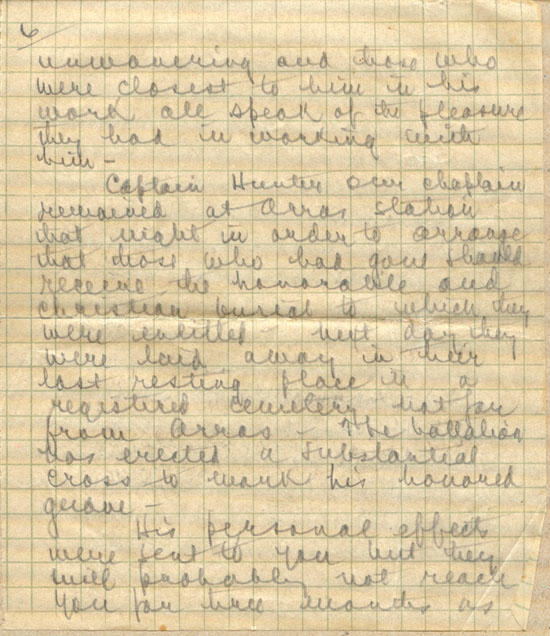 6
unwavering and those who
were closest to him in his
work all speak of the pleasure
they had in working with
him -
Captain Hunter our chaplain
remained at Arras station
that night in order to arrange
that those who had gone should
receive the honorable and
christian burial to which they
were entitled - next day they
were laid away in their
last resting place in a
registered cemetery not far
from Arras - The battalion
has erected a substantial
cross to mark his honored
grave -
His personal effects
were sent to you but they
will probably not reach
you for two months as